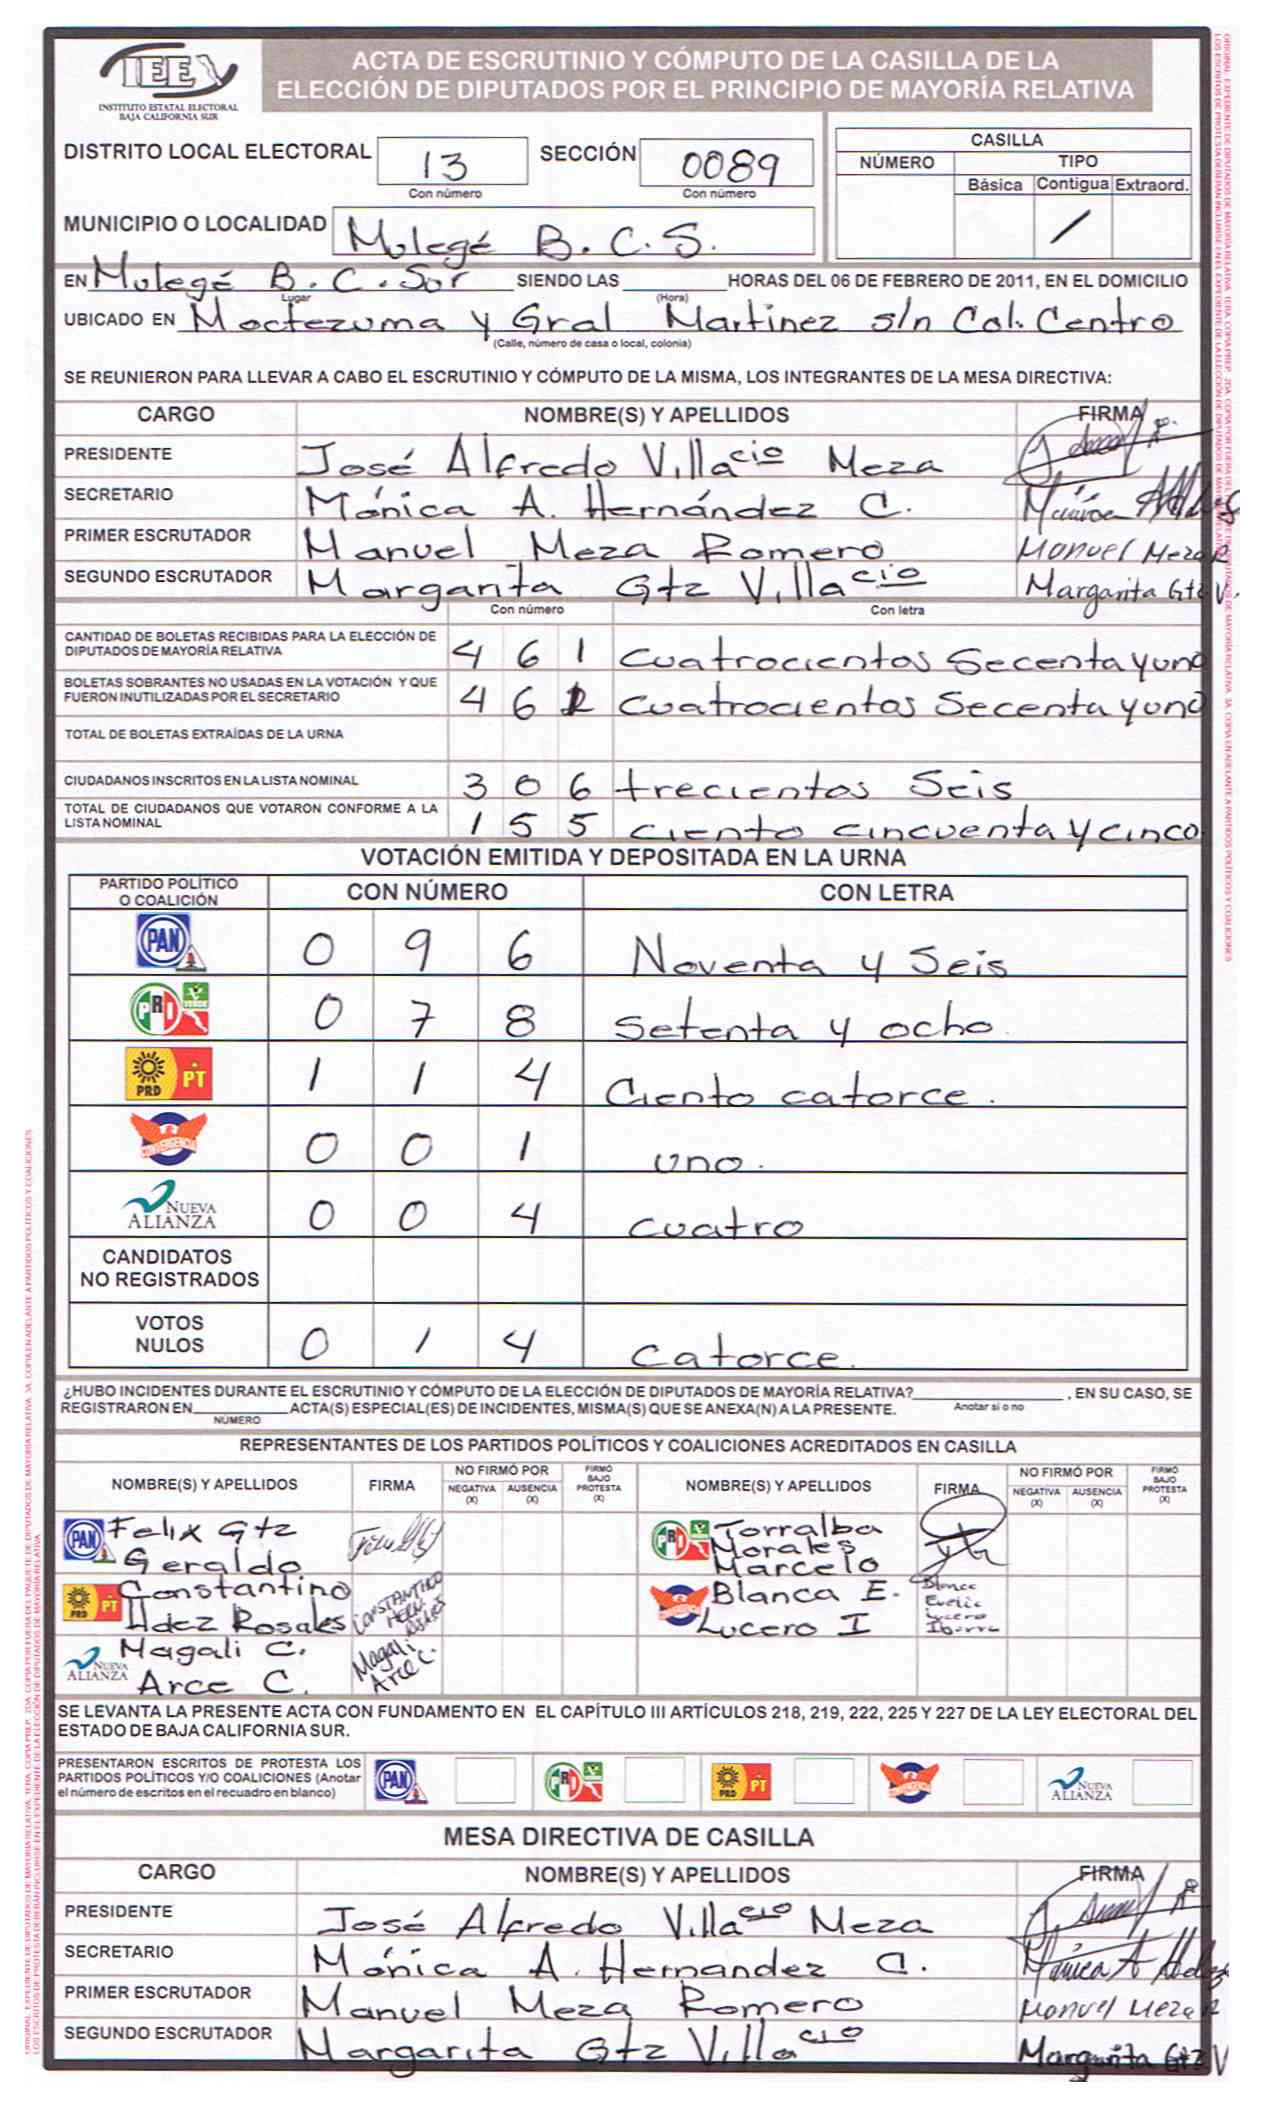 IEEX
INSTITUTO ESTATAL ELECTORAL
BAJA CALIFORNIA SUR
ACTA DE ESCRUTINIO Y CÓMPUTO DE LA CASILLA DE LA
ELECCIÓN DE DIPUTADOS POR EL PRINCIPIO DE MAYORÍA RELATIVA
DISTRITO LOCAL ELECTORAL 13 SECCIÓN 0089
Con número Con número
CASILLA
NÚMERO TIPO
Básica Contigua Extraord.
/
MUNICIPIO O LOCALIDAD Mulegé B.C.S.
EN Mulegé B.C.Sur SIENDO LAS HORAS DEL 06 DE FEBRERO DE 2011, EN EL DOMICILIO
Lugar (Hora)
UBICADO EN Moctezuma y Gral Martinez s/n Col. Centro
(Calle, número de casa o local, colonia)
SE REUNIERON PARA LLEVAR A CABO EL ESCRUTINIO Y CÓMPUTO DE LA MISMA, LOS INTEGRANTES DE LA MESA DIRECTIVA:
CARGO NOMBRE(S) Y APELLIDOS FIRMA
PRESIDENTE José Alfredo Villacio Meza
SECRETARIO Mónica A. Hernández C. Mónica
PRIMER ESCRUTADOR Manuel Meza Romero Manuel Meza R
SEGUNDO ESCRUTADOR Margarita Gtz Villacio Margarita Gtz V.
Con número Con letra
CANTIDAD DE BOLETAS RECIBIDAS PARA LA ELECCIÓN DE
DIPUTADOS DE MAYORÍA RELATIVA 4 6 1 Cuatrocientos Secenta y uno
BOLETAS SOBRANTES NO USADAS EN LA VOTACIÓN Y QUE
FUERON INUTILIZADAS POR EL SECRETARIO 4 6 1 Cuatrocientos Secenta y uno
TOTAL DE BOLETAS EXTRAÍDAS DE LA URNA
CIUDADANOS INSCRITOS EN LA LISTA NOMINAL 3 0 6 trecientos Seis
TOTAL DE CIUDADANOS QUE VOTARON CONFORME A LA
LISTA NOMINAL 1 5 5 ciento cincuenta y cinco
VOTACIÓN EMITIDA Y DEPOSITADA EN LA URNA
PARTIDO POLÍTICO
O COALICIÓN CON NÚMERO CON LETRA
PAN 0 9 6 Noventa y Seis
PRI VERDE 0 7 8 Setenta y ocho.
PRD PT 1 1 4 Ciento catorce.
CONVERGENCIA 0 0 1 uno.
NUEVA ALIANZA 0 0 4 cuatro
CANDIDATOS
NO REGISTRADOS
VOTOS
NULOS 0 1 4 Catorce.
¿HUBO INCIDENTES DURANTE EL ESCRUTINIO Y CÓMPUTO DE LA ELECCIÓN DE DIPUTADOS DE MAYORÍA RELATIVA? , EN SU CASO, SE
REGISTRARON EN ACTA(S) ESPECIAL(ES) DE INCIDENTES, MISMA(S) QUE SE ANEXA(N) A LA PRESENTE. Anotar si o no
NÚMERO
REPRESENTANTES DE LOS PARTIDOS POLÍTICOS Y COALICIONES ACREDITADOS EN CASILLA
NOMBRE(S) Y APELLIDOS FIRMA NO FIRMÓ POR NEGATIVA (X) AUSENCIA (X) FIRMÓ BAJO PROTESTA (X) NOMBRE(S) Y APELLIDOS FIRMA NO FIRMÓ POR NEGATIVA (X) AUSENCIA (X) FIRMÓ BAJO PROTESTA (X)
PAN Felix Gtz
Geraldo
PRI Torralba
Morales
Marcelo
PRD PT Constantino
Hdez Rosales CONSTANTINO
Blanca E.
Lucero I Blanca
Evelia
Lucero
Ibarra
NUEVA ALIANZA Magali C.
Arce C. Magali
Arce C.
SE LEVANTA LA PRESENTE ACTA CON FUNDAMENTO EN EL CAPÍTULO III ARTÍCULOS 218, 219, 222, 225 Y 227 DE LA LEY ELECTORAL DEL
ESTADO DE BAJA CALIFORNIA SUR.
PRESENTARON ESCRITOS DE PROTESTA LOS
PARTIDOS POLÍTICOS Y/O COALICIONES (Anotar
el número de escritos en el recuadro en blanco)
PAN PRI PRD PT NUEVA ALIANZA
MESA DIRECTIVA DE CASILLA
CARGO NOMBRE(S) Y APELLIDOS FIRMA
PRESIDENTE José Alfredo Villacio Meza
SECRETARIO Mónica A. Hernandez C. Mónica A Hdez
PRIMER ESCRUTADOR Manuel Meza Romero Manuel Meza R
SEGUNDO ESCRUTADOR Margarita Gtz Villacio Margarita Gtz V